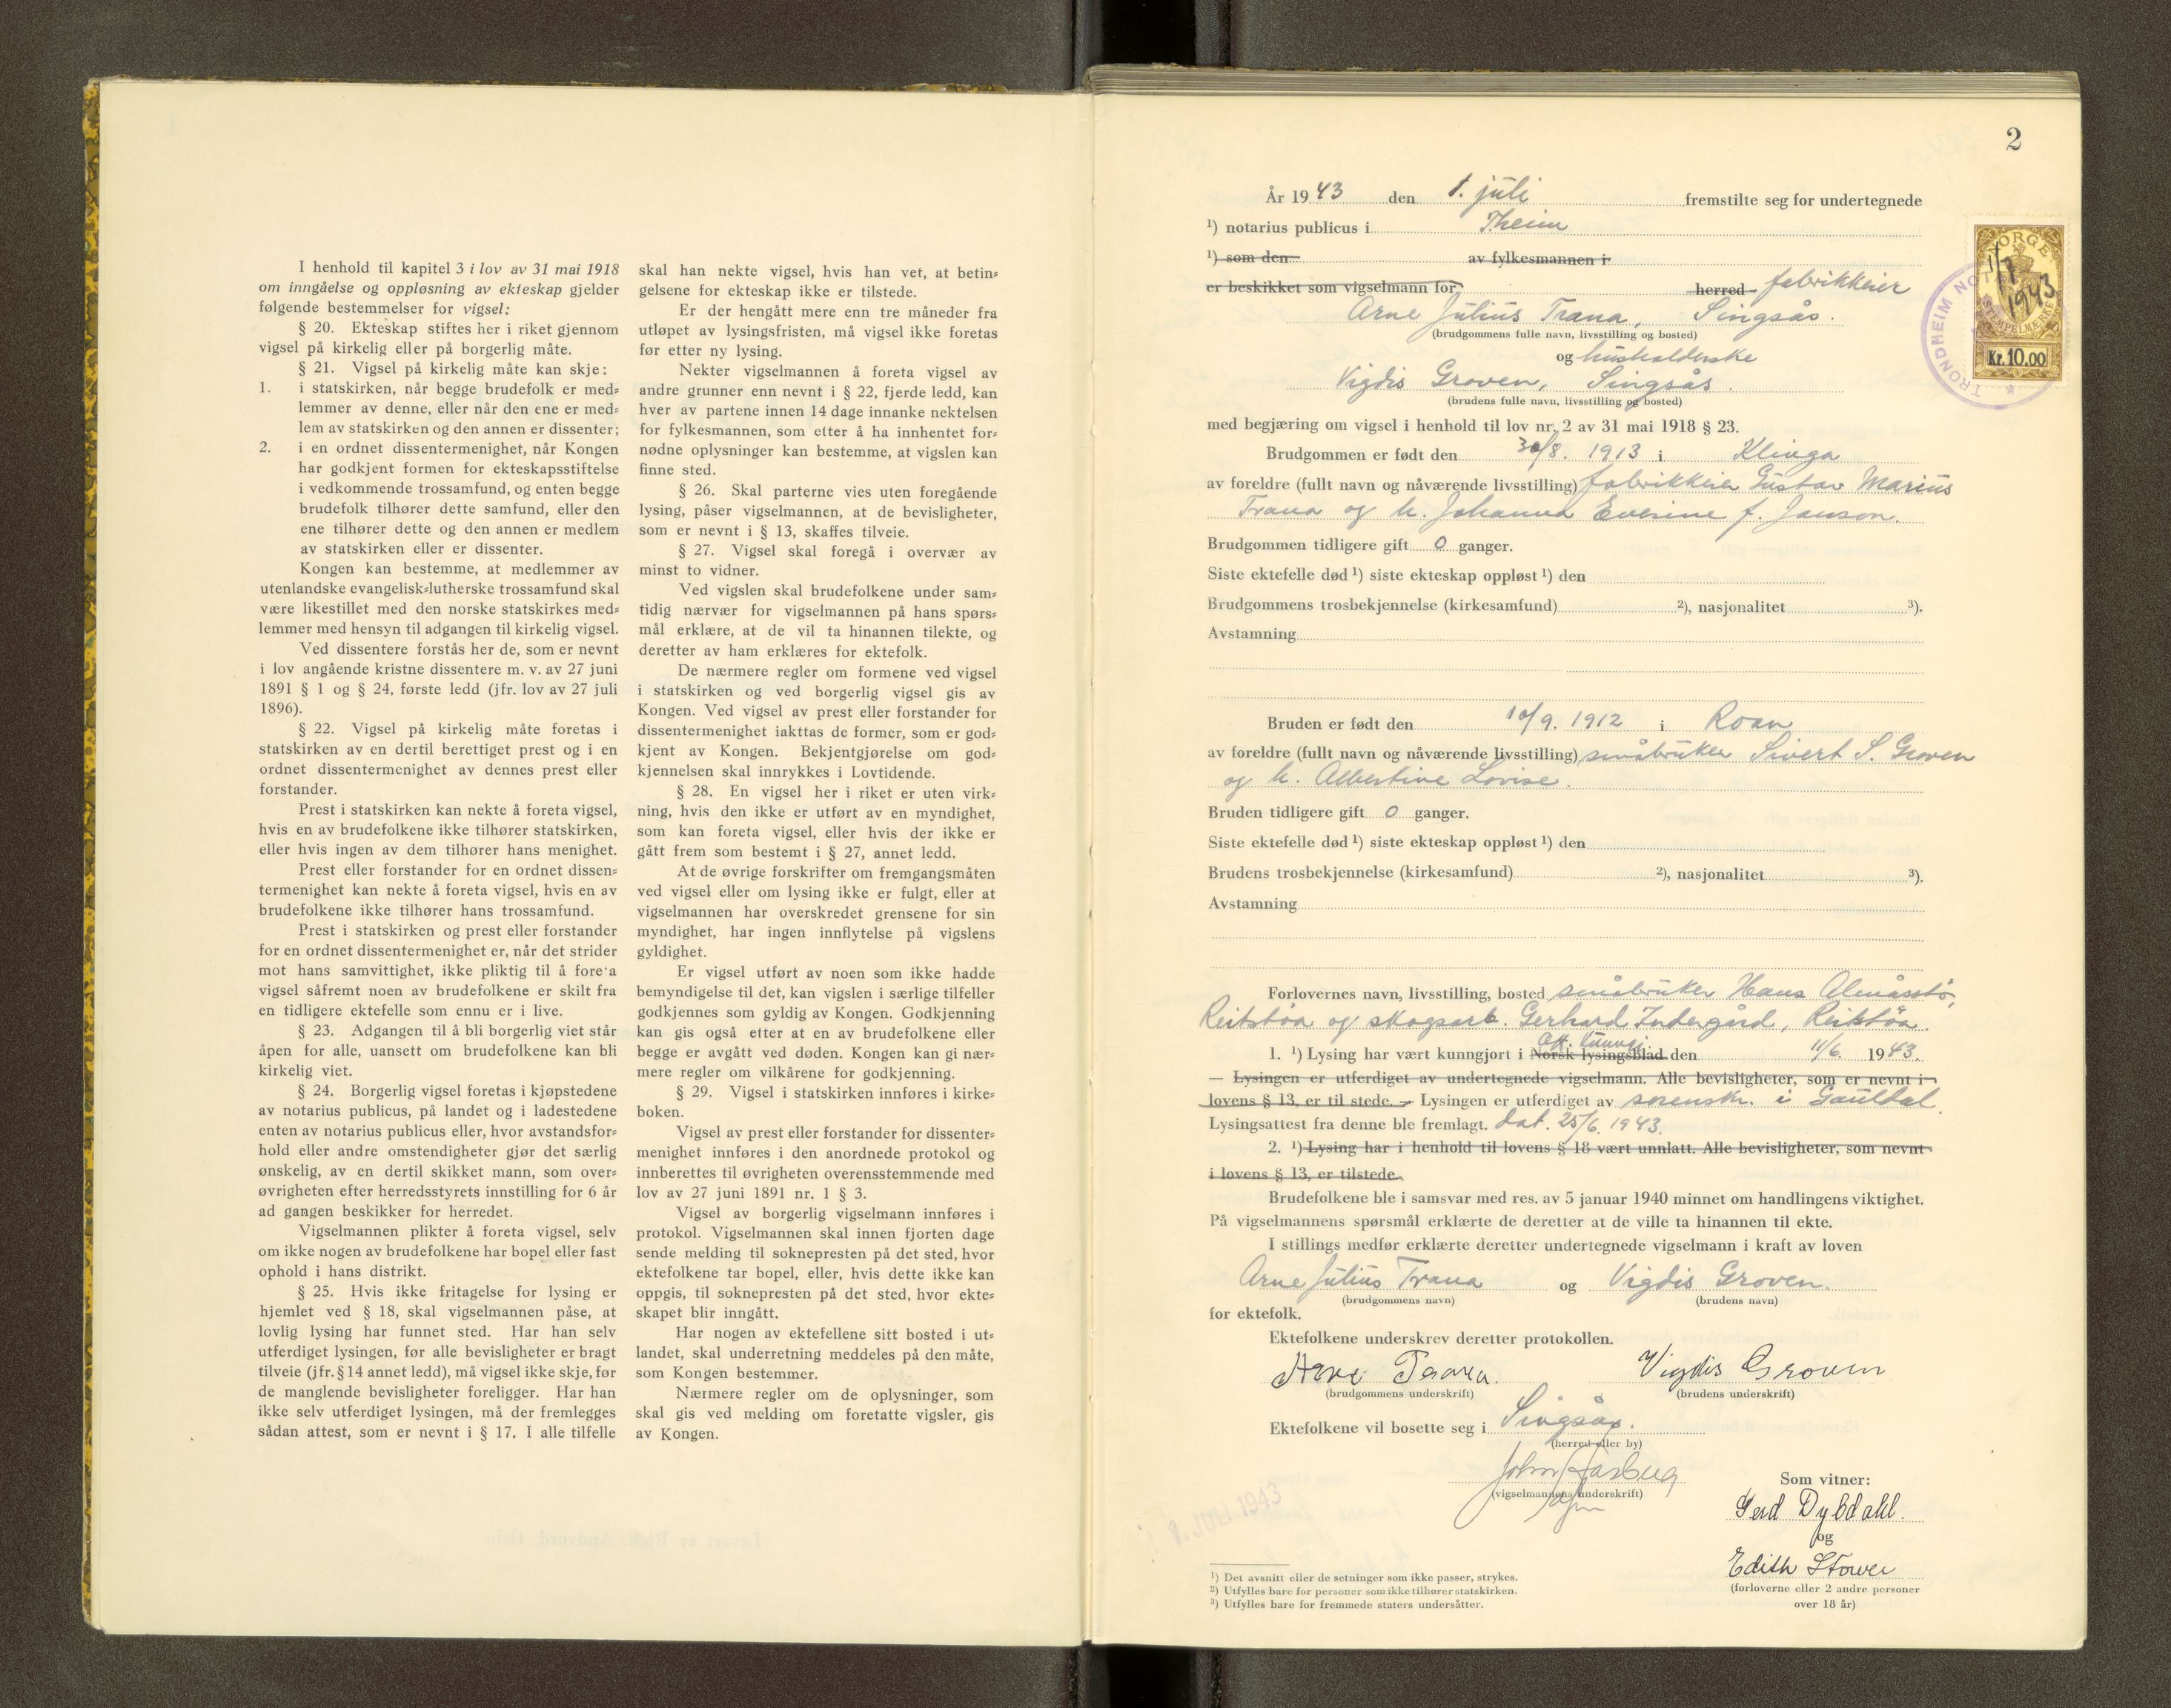 I henhold til kapitel 3 i lov av 31 mai 1918
om inngåelse og oppløsning av ekteskap gjelder
følgende bestemmelser for vigsel:
§ 20. Ekteskap stiftes her i riket gjennom
vigsel på kirkelig eller på borgerlig måte.
§ 21. Vigsel på kirkelig måte kan skje:
1. i statskirken, når begge brudefolk er med=
lemmer av denne, eller når den ene er med=
lem av statskirken og den annen er dissenter;
2. i en ordnet dissentermenighet, når Kongen
har godkjent formen for ekteskapsstiftelse
i vedkommende trossamfund, og enten begge
brudefolk tilhører dette samfund, eller den
ene tilhører dette og den annen er medlem
av statskirken eller er dissenter.
Kongen kan bestemme, at medlemmer av
utenlandske evangelisk=lutherske trossamfund skal
være likestillet med den norske statskirkes med=
lemmer med hensyn til adgangen til kirkelig vigsel.
Ved dissentere forstås her de, som er nevnt
i lov angående kristne dissentere m. v. av 27 juni
1891 § 1 og § 24, første ledd (jfr. lov av 27 juli
1896).
§ 22. Vigsel på kirkelig måte foretas i
statskirken av en dertil berettiget prest og i en
ordnet dissentermenighet av dennes prest eller
forstander.
Prest i statskirken kan nekte å foreta vigsel,
hvis en av brudefolkene ikke tilhører statskirken,
eller hvis ingen av dem tilhører hans menighet.
Prest eller forstander for en ordnet dissen=
termenighet kan nekte å foreta vigsel, hvis en av
brudefolkene ikke tilhører hans trossamfund.
Prest i statskirken og prest eller forstander
for en ordnet dissentermenighet er, når det strider
mot hans samvittighet, ikke pliktig til å fore'a
vigsel såfremt noen av brudefolkene er skilt fra
en tidligere ektefelle som ennu er i live.
§ 23. Adgangen til å bli borgerlig viet står
åpen for alle, uansett om brudefolkene kan bli
kirkelig viet.
§ 24. Borgerlig vigsel foretas i kjøpstedene
av notarius publicus, på landet og i ladestedene
enten av notarius publicus eller, hvor avstandsfor=
hold eller andre omstendigheter gjør det særlig
ønskelig, av en dertil skikket mann, som over=
øvrigheten efter herredsstyrets innstilling for 6 år
ad gangen beskikker for herredet.
Vigselmannen plikter å foreta vigsel, selv
om ikke nogen av brudefolkene har bopel eller fast
ophold i hans distrikt.
§ 25. Hvis ikke fritagelse for lysing er
hjemlet ved § 18, skal vigselmannen påse, at
lovlig lysing har funnet sted. Har han selv
utferdiget lysingen, før alle bevisligheter er bragt
tilveie (jfr. § 14 annet ledd), må vigsel ikke skje, før
de manglende bevisligheter foreligger. Har han
ikke selv utferdiget lysingen, må der fremlegges
sådan attest, som er nevnt i § 17. I alle tilfelle
skal han nekte vigsel, hvis han vet, at betin=
gelsene for ekteskap ikke er tilstede.
Er der hengått mere enn tre måneder fra
utløpet av lysingsfristen, må vigsel ikke foretas
før etter ny lysing.
Nekter vigselmannen å foreta vigsel av
andre grunner enn nevnt i § 22, fjerde ledd, kan
hver av partene innen 14 dage innanke nektelsen
for fylkesmannen, som etter å ha innhentet for=
nødne oplysninger kan bestemme, at vigslen kan
finne sted.
§ 26. Skal parterne vies uten foregående
lysing, påser vigselmannen, at de bevisligheter,
som er nevnt i § 13, skaffes tilveie.
§ 27. Vigsel skal foregå i overvær av
minst to vidner.
Ved vigslen skal brudefolkene under sam=
tidig nærvær for vigselmannen på hans spørs=
mål erklære, at de vil ta hinannen tilekte, og
deretter av ham erklæres for ektefolk.
De nærmere regler om formene ved vigsel
i statskirken og ved borgerlig vigsel gis av
Kongen. Ved vigsel av prest eller forstander for
dissentermenighet iakttas de former, som er god=
kjent av Kongen. Bekjentgjørelse om god=
kjennelsen skal innrykkes i Lovtidende.
§ 28. En vigsel her i riket er uten virk=
ning, hvis den ikke er utført av en myndighet,
som kan foreta vigsel, eller hvis der ikke er
gått frem som bestemt i § 27, annet ledd.
At de øvrige forskrifter om fremgangsmåten
ved vigsel eller om lysing ikke er fulgt, eller at
vigselmannen har overskredet grensene for sin
myndighet, har ingen innflytelse på vigslens
gyldighet.
Er vigsel utført av noen som ikke hadde
bemyndigelse til det, kan vigslen i særlige tilfeller
godkjennes som gyldig av Kongen. Godkjenning
kan gis også etter at en av brudefolkene eller
begge er avgått ved døden. Kongen kan gi nær=
mere regler om vilkårene for godkjenning.
§ 29. Vigsel i statskirken innføres i kirke=
boken.
Vigsel av prest eller forstander for dissenter=
menighet innføres i den anordnede protokol og
innberettes til øvrigheten overensstemmende med
lov av 27 juni 1891 nr. 1 § 3.
Vigsel av borgerlig vigselmann innføres i
protokol. Vigselmannen skal innen fjorten dage
sende melding til soknepresten på det sted, hvor
ektefolkene tar bopel, eller, hvis dette ikke kan
oppgis, til soknepresten på det sted, hvor ekte=
skapet blir inngått.
Har nogen av ektefellene sitt bosted i ut=
landet, skal underretning meddeles på den måte,
som Kongen bestemmer.
Nærmere regler om de oplysninger, som
skal gis ved melding om foretatte vigsler, gis
av Kongen.
2
År 1943 den 1. juli fremstilte seg for undertegnede
¹) notarius publicus i Theim
¹) som den av fylkesmannen i
er beskikket som vigselmann for herred fabrikkeier
Arne Julius Trana, Singsås.
(brudgommens fulle navn, livsstilling og bosted)
og husholderske
Vigdis Groven, Singsås.
(brudens fulle navn, livsstilling og bosted)
NORGE
STEMPELMERKE
1/7 1943
Kr. 10.00
TRONDHEIM NOT
med begjæring om vigsel i henhold til lov nr. 2 av 31 mai 1918 § 23.
Brudgommen er født den 30/8. 1913 i Klinga
av foreldre (fullt navn og nåværende livsstilling) fabrikkeier Gustav Marius
Trana og h. Johanna Everine f. Janson.
Brudgommen tidligere gift 0 ganger.
Siste ektefelle død ¹) siste ekteskap oppløst ¹) den
Brudgommens trosbekjennelse (kirkesamfund) ²), nasjonalitet ³).
Avstamning
Bruden er født den 10/9. 1912 i Roan
av foreldre (fullt navn og nåværende livsstilling) småbruker Sivert S. Groven
og h. Albertine Lovise.
Bruden tidligere gift 0 ganger.
Siste ektefelle død ¹) siste ekteskap oppløst ¹) den
Brudens trosbekjennelse (kirkesamfund) ²), nasjonalitet ³).
Avstamning
Forlovernes navn, livsstilling, bosted småbruker Hans Almåsstø,
Reitstøa og skogsarb. Gerhard Indergård, Reitstøa.
Off. kunngj.
1. ¹) Lysing har vært kunngjort i Norsk lysingsblad den 11/6. 1943.
— Lysingen er utferdiget av undertegnede vigselmann. Alle bevisligheter, som er nevnt i
lovens § 13, er til stede. — Lysingen er utferdiget av sorenskr. i Gauldal.
Lysingsattest fra denne ble fremlagt. dat. 25/6. 1943.
2. ¹) Lysing har i henhold til lovens § 18 vært unnlatt. Alle bevisligheter, som nevnt
i lovens § 13, er tilstede.
Brudefolkene ble i samsvar med res. av 5 januar 1940 minnet om handlingens viktighet.
På vigselmannens spørsmål erklærte de deretter at de ville ta hinannen til ekte.
I stillings medfør erklærte deretter undertegnede vigselmann i kraft av loven
Arne Julius Trana og Vigdis Groven.
(brudgommens navn) (brudens navn)
for ektefolk.
Ektefolkene underskrev deretter protokollen.
Arne Trana. Vigdis Groven
(brudgommens underskrift) (brudens underskrift)
Ektefolkene vil bosette seg i Singsås.
(herred eller by)
(vigselmannens underskrift)
Som vitner:
Gerd Dybdahl.
og
Edith Stower
(forloverne eller 2 andre personer
over 18 år)
1. JULI 1943
¹) Det avsnitt eller de setninger som ikke passer, strykes.
²) Utfylles bare for personer som ikke tilhører statskirken.
³) Utfylles bare for fremmede staters undersåtter.